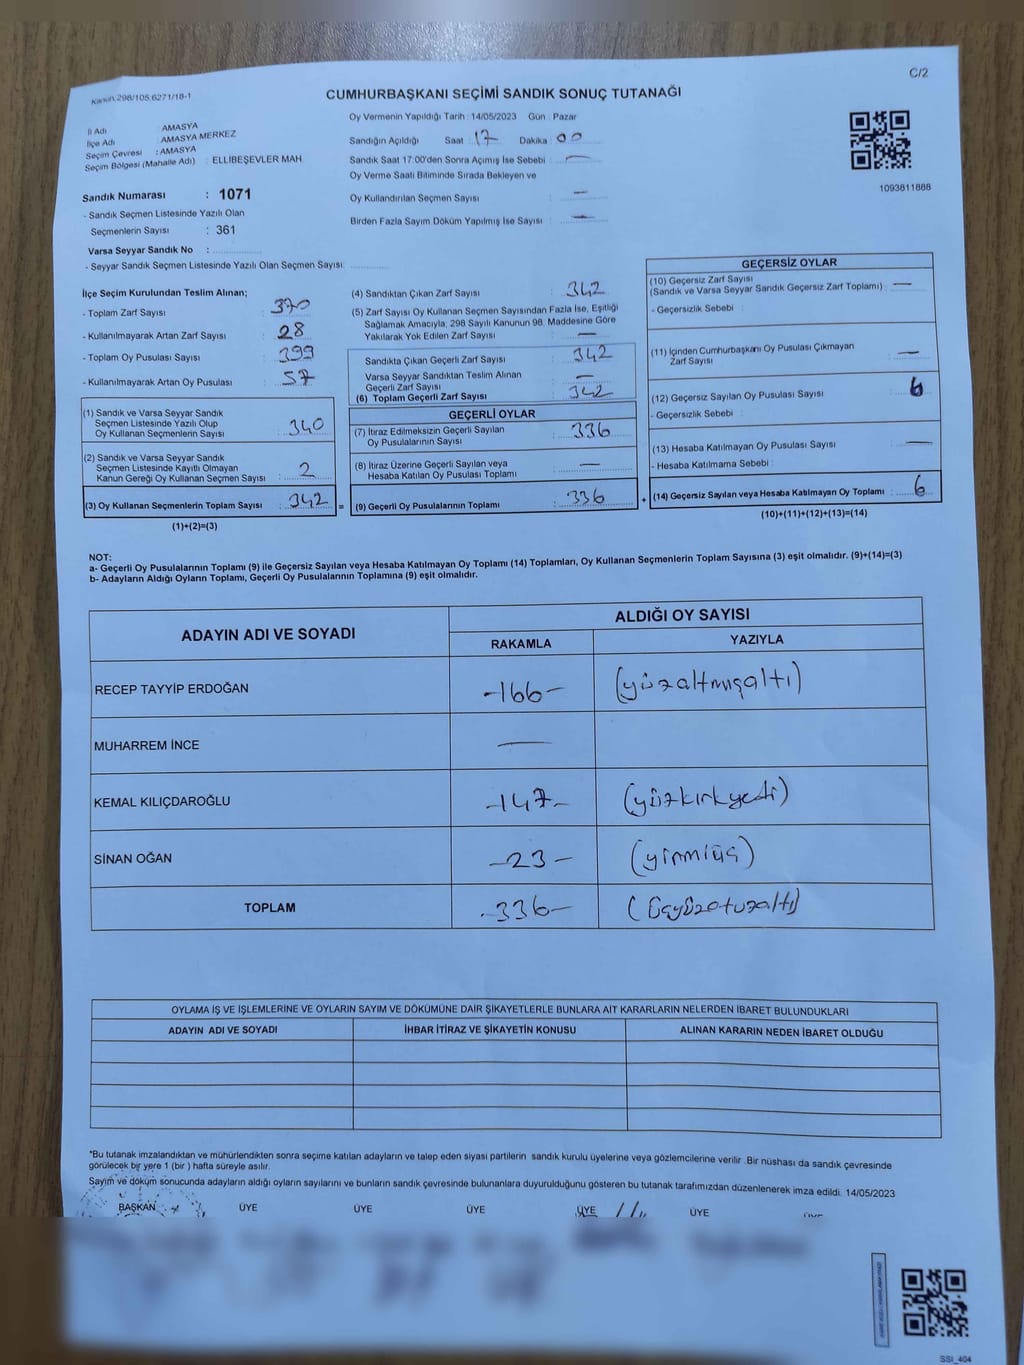 C/2
Kanun 298/105 6271/18-1
CUMHURBAŞKANI SEÇİMİ SANDIK SONUÇ TUTANAĞI
İl Adı : AMASYA
İlçe Adı : AMASYA MERKEZ
Seçim Çevresi : AMASYA
Seçim Bölgesi (Mahalle Adı) : ELLİBEŞEVLER MAH
Sandık Numarası : 1071
- Sandık Seçmen Listesinde Yazılı Olan
Seçmenlerin Sayısı : 361
Varsa Seyyar Sandık No :
- Seyyar Sandık Seçmen Listesinde Yazılı Olan Seçmen Sayısı:
Oy Vermenin Yapıldığı Tarih : 14/05/2023 Gün : Pazar
Sandığın Açıldığı Saat : 17 Dakika : 00
Sandık Saat 17:00'den Sonra Açımış İse Sebebi : —
Oy Verme Saati Bitiminde Sırada Bekleyen ve
Oy Kullandırılan Seçmen Sayısı : —
Birden Fazla Sayım Döküm Yapılmış İse Sayısı : —
1093811888
İlçe Seçim Kurulundan Teslim Alınan;
- Toplam Zarf Sayısı : 370
- Kullanılmayarak Artan Zarf Sayısı : 28
- Toplam Oy Pusulası Sayısı : 399
- Kullanılmayarak Artan Oy Pusulası : 57
(1) Sandık ve Varsa Seyyar Sandık
Seçmen Listesinde Yazılı Olup
Oy Kullanan Seçmenlerin Sayısı : 340
(2) Sandık ve Varsa Seyyar Sandık
Seçmen Listesinde Kayıtlı Olmayan
Kanun Gereği Oy Kullanan Seçmen Sayısı : 2
(3) Oy Kullanan Seçmenlerin Toplam Sayısı : 342
(1)+(2)=(3)
(4) Sandıktan Çıkan Zarf Sayısı : 342
(5) Zarf Sayısı Oy Kullanan Seçmen Sayısından Fazla İse, Eşitliği
Sağlamak Amacıyla, 298 Sayılı Kanunun 98. Maddesine Göre
Yakılarak Yok Edilen Zarf Sayısı : —
Sandıkta Çıkan Geçerli Zarf Sayısı : 342
Varsa Seyyar Sandıktan Teslim Alınan
Geçerli Zarf Sayısı : —
(6) Toplam Geçerli Zarf Sayısı : 342
GEÇERLİ OYLAR
(7) İtiraz Edilmeksizin Geçerli Sayılan
Oy Pusulalarının Sayısı : 336
(8) İtiraz Üzerine Geçerli Sayılan veya
Hesaba Katılan Oy Pusulası Toplamı : —
= (9) Geçerli Oy Pusulalarının Toplamı : 336
GEÇERSİZ OYLAR
(10) Geçersiz Zarf Sayısı
(Sandık ve Varsa Seyyar Sandık Geçersiz Zarf Toplamı) : —
- Geçersizlik Sebebi :
(11) İçinden Cumhurbaşkanı Oy Pusulası Çıkmayan
Zarf Sayısı : —
(12) Geçersiz Sayılan Oy Pusulası Sayısı : 6
- Geçersizlik Sebebi :
(13) Hesaba Katılmayan Oy Pusulası Sayısı : —
- Hesaba Katılmama Sebebi :
+ (14) Geçersiz Sayılan veya Hesaba Katılmayan Oy Toplamı : 6
(10)+(11)+(12)+(13)=(14)
NOT:
a- Geçerli Oy Pusulalarının Toplamı (9) ile Geçersiz Sayılan veya Hesaba Katılmayan Oy Toplamı (14) Toplamları, Oy Kullanan Seçmenlerin Toplam Sayısına (3) eşit olmalıdır. (9)+(14)=(3)
b- Adayların Aldığı Oyların Toplamı, Geçerli Oy Pusulalarının Toplamına (9) eşit olmalıdır.
ADAYIN ADI VE SOYADI ALDIĞI OY SAYISI
RAKAMLA YAZIYLA
RECEP TAYYİP ERDOĞAN -166- (yüzaltmışaltı)
MUHARREM İNCE —
KEMAL KILIÇDAROĞLU -147- (yüzkırkyedi)
SİNAN OĞAN -23- (yirmiüç)
TOPLAM -336- (Üçyüzotuzaltı)
OYLAMA İŞ VE İŞLEMLERİNE VE OYLARIN SAYIM VE DÖKÜMÜNE DAİR ŞİKAYETLERLE BUNLARA AİT KARARLARIN NELERDEN İBARET BULUNDUKLARI
ADAYIN ADI VE SOYADI İHBAR İTİRAZ VE ŞİKAYETİN KONUSU ALINAN KARARIN NEDEN İBARET OLDUĞU
*Bu tutanak imzalandıktan ve mühürlendikten sonra seçime katılan adayların ve talep eden siyasi partilerin sandık kurulu üyelerine veya gözlemcilerine verilir .Bir nüshası da sandık çevresinde
görülecek bir yere 1 (bir ) hafta süreyle asılır.
Sayım ve döküm sonucunda adayların aldığı oyların sayılarını ve bunların sandık çevresinde bulunanlara duyurulduğunu gösteren bu tutanak tarafımızdan düzenlenerek imza edildi. 14/05/2023
BAŞKAN ÜYE ÜYE ÜYE ÜYE ÜYE ÜYE
SSİ_404